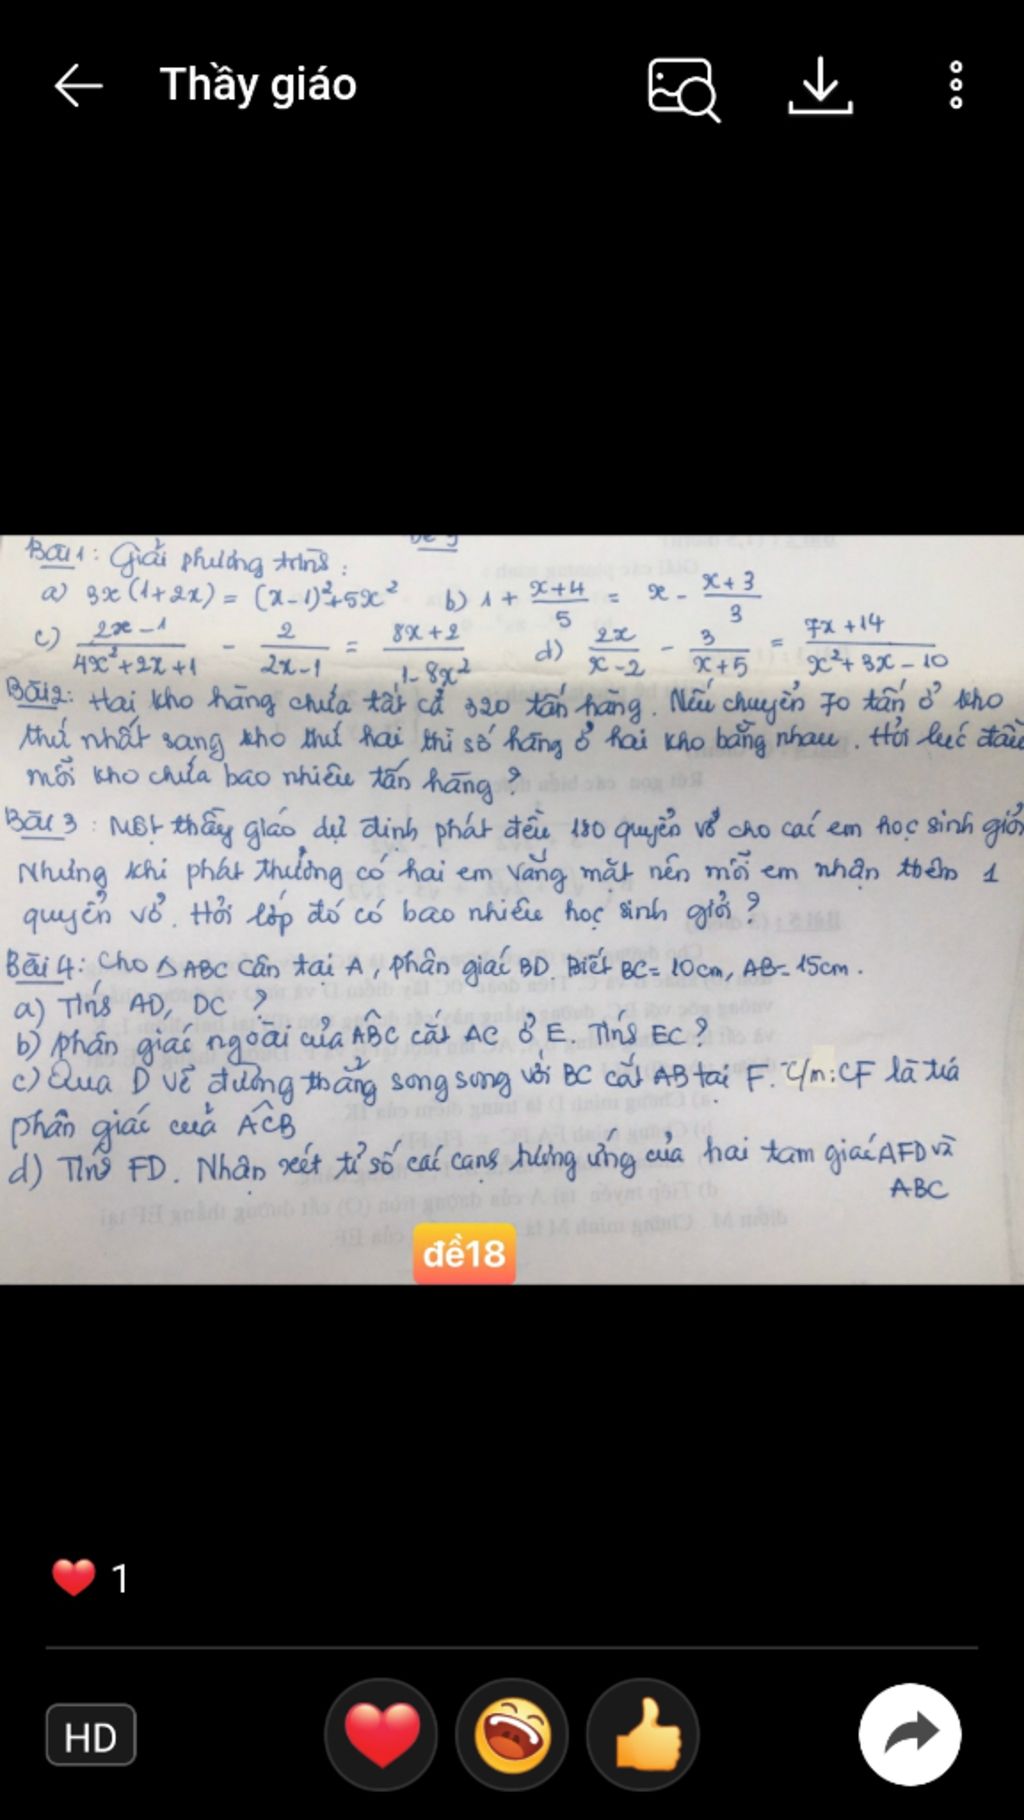 Thầy giáo
Bài 1: Giải phương trình:
a) 3x(1+2x) = (x-1)²+5x² b) 1 + (x+4)/5 = x - (x+3)/3
c) (2x-1)/(4x²+2x+1) - 2/(2x-1) = (8x+2)/(1-8x²) d) 2x/(x-2) - 3/(x+5) = (7x+14)/(x²+3x-10)
Bài 2: Hai kho hàng chứa tất cả 320 tấn hàng. Nếu chuyển 70 tấn ở kho
thứ nhất sang kho thứ hai thì số hàng ở hai kho bằng nhau. Hỏi lúc đầu
mỗi kho chứa bao nhiêu tấn hàng?
Bài 3: Một thầy giáo dự định phát đều 180 quyển vở cho các em học sinh giỏi
Nhưng khi phát thưởng có hai em vắng mặt nên mỗi em nhận thêm 1
quyển vở. Hỏi lớp đó có bao nhiêu học sinh giỏi?
Bài 4: Cho △ABC cân tại A, phân giác BD. Biết BC = 10cm, AB = 15cm.
a) Tính AD, DC ?
b) phân giác ngoài của ABC cắt AC ở E. Tính EC?
c) Qua D vẽ đường thẳng song song với BC cắt AB tại F. C/m: CF là tia
phân giác của ACB
d) Tính FD. Nhận xét tỉ số các cạnh tương ứng của hai tam giác AFD và
ABC
đề18
1
HD